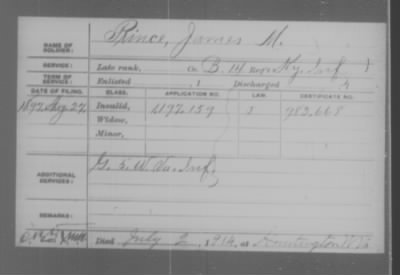 NAME OF SOLDIER: Prince, James M.
SERVICE: Late rank, Co. B. 14 Reg't Ky. Inf
TERM OF SERVICE: Enlisted , 1 Discharged
DATE OF FILING. CLASS. APPLICATION NO. LAW. CERTIFICATE NO.
1892 Aug 22 Invalid, 1197.159 983.668
Widow,
Minor,
ADDITIONAL SERVICES: G. 5. W. Va. Inf,
REMARKS:
Died July 2, 1914, at Huntington W. Va.